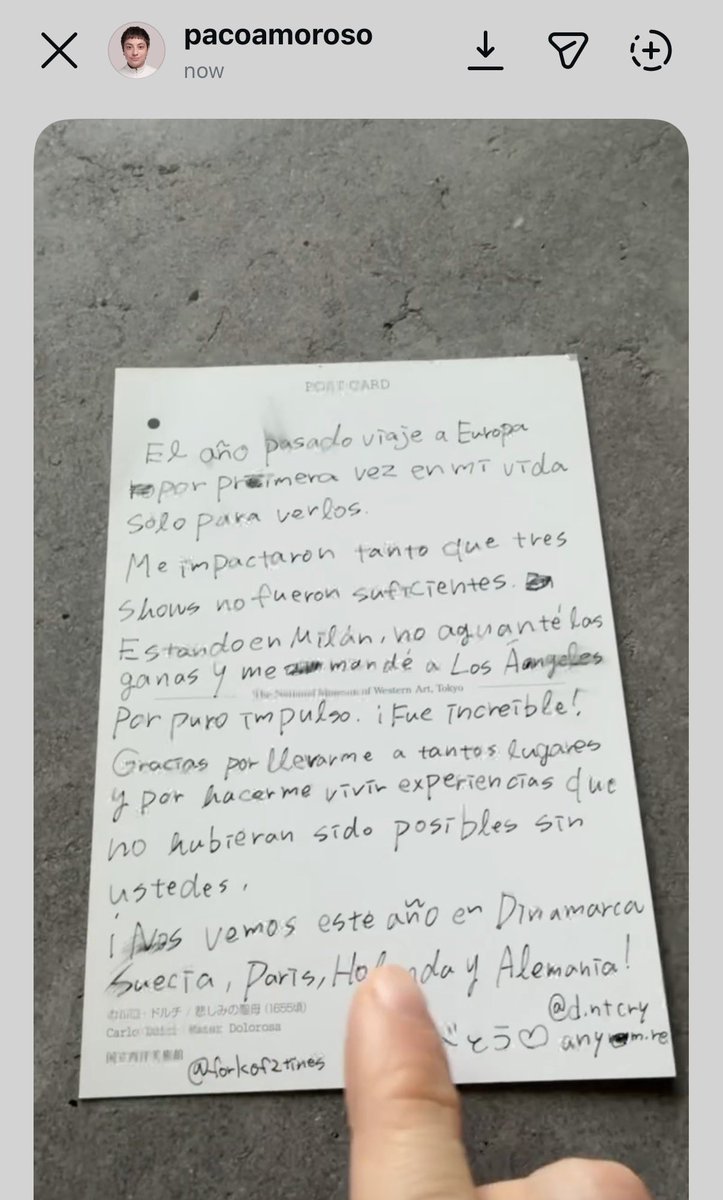 pacoamoroso
now
POST CARD
El año pasado viaje a Europa
por primera vez en mi vida
sólo para verlos.
Me impactaron tanto que tres
shows no fueron suficientes.
Estando en Milán, no aguanté las
ganas y me mandé a Los Ángeles
The National Museum of Western Art, Tokyo
Por puro impulso. ¡Fue increíble!
Gracias por llevarme a tantos lugares
y por hacerme vivir experiencias que
no hubieran sido posibles sin
ustedes.
¡Nos vemos este año en Dinamarca
Suecia, Paris, y Alemania!
カルロ・ドルチ / 悲しみの聖母 (1655頃)
Carlo Dolci Mater Dolorosa
@d.ntcry
とう♡
国立西洋美術館
@forkof2tines